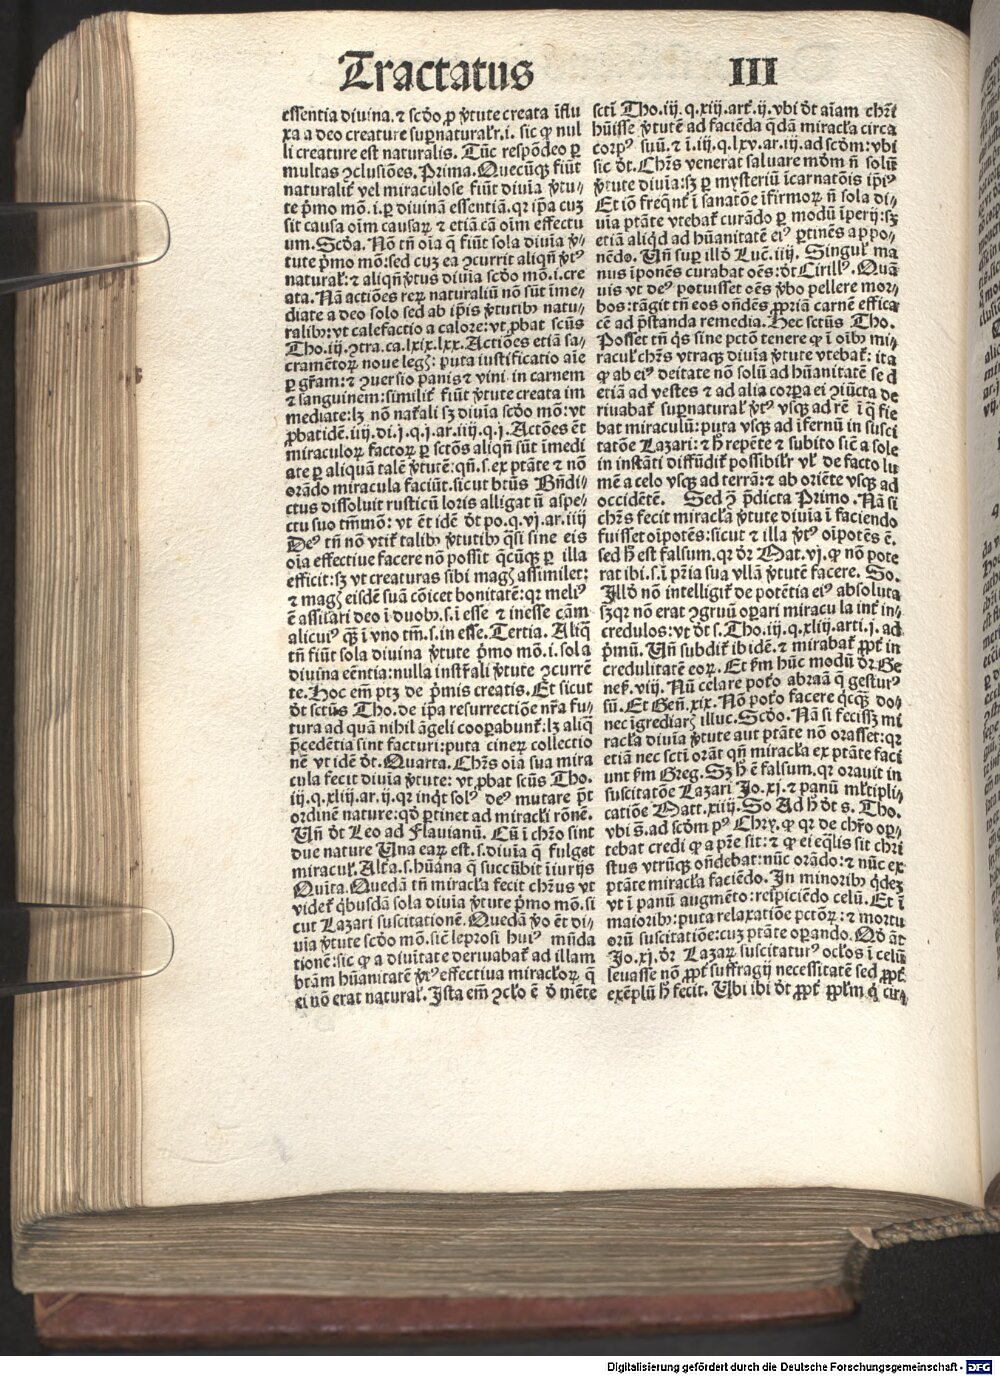 Tractatus III
essentia diuina. ⁊ scḋo ꝓ ꝟtute creata īflu
xa a deo creature suꝑnaturalr̄.i. sic ꝙ nul
li creature est naturalis. Tūc respōdeo ꝑ
multas ↄclusiōes. Prima. Quecūqꝫ fiūt
naturalit̄ vel miraculose fiūt diuīa ꝟtu⸗
te pͥmo mō.i. ꝑ diuinā essentiā. qꝛ ip̄a cuꝫ
sit causa oīm causaꝝ ⁊ etiā cā oīm effectu
um. Scḋa. Nō tn̄ oīa q̄ fiūt sola diuīa ꝟ⸗
tute pͥmo mō: sed cuꝫ ea ↄcurrit aliqn̄ ꝟtꝰ
natural̄: ⁊ aliqn̄ ꝟtus diuīa scḋo mō.i. cre
ata. Nā actiōes reꝝ naturaliū nō sūt īme⸗
diate a deo solo sed ab ip̄is ꝟtutibꝫ natu⸗
ralibꝫ: vt calefactio a calore: vt ꝓbat scūs
Tho. iij. ↄtra. ca. lxix. lxx. Actiōes etiā sa⸗
cramētoꝝ noue legꝭ: puta iustificatio aīe
ꝑ gr̄am: ⁊ ↄuersio panis ⁊ vini in carnem
⁊ sanguinem: similit̄ fiūt ꝟtute creata im
mediate: lꝫ nō nat̄ali sꝫ diuīa scḋo mō: vt
ꝓbat idē. iiij. di. j. q. j. ar. iiij. q. j. Actōes ēt
miraculoꝝ factoꝝ ꝑ sctōs aliqn̄ sūt īmedi
ate ꝑ aliquā talē ꝟtutē: qn̄.s. ex ptāte ⁊ nō
orādo miracula faciūt. sicut btūs Bn̄di⸗
ctus dissoluit rusticū loris alligatū aspe⸗
ctu suo tm̄mō: vt ēt idē ḋt po. q. vj. ar. iiij
Deꝰ tn̄ nō vtit̄ talibꝫ ꝟtutibꝫ q̄si sine eis
oīa effectiue facere nō possit q̄cūqꝫ ꝑ illa
efficit: sꝫ vt creaturas sibi magꝭ assimilet:
⁊ magꝭ eisdē suā cōicet bonitatē: qꝛ meliꝰ
ē assilari deo ī duobꝫ.s. ī esse ⁊ inesse cām
alicuiꝰ qꝫ̄ ī vno tm̄.s. in esse. Tertia. Aliq̄
tn̄ fiūt sola diuina ꝟtute pͥmo mō.i. sola
diuina eēntia: nulla instr̄ali ꝟtute ↄcurrē
te. Hoc em̄ ptꝫ de pͥmis creatis. Et sicut
ḋt sctūs Tho. de ip̄a resurrectiōe nr̄a fu⸗
tura ad quā nihil āgeli cooꝑabunt̄: lꝫ aliq̄
p̄cedētia sint facturi: puta cineꝝ collectio
nē vt idē ḋt. Quarta. Chr̄s oīa sua mira
cula fecit diuīa ꝟtute: vt ꝓbat scūs Tho.
iij. q. xliij. ar. ij. qꝛ inq̇t solꝰ deꝰ mutare pt̄
ordinē nature: qḋ ꝑtinet ad miracłi rōnē.
Un̄ ḋt Leo ad Flauianū. Cū ī chr̄o sint
due nature Una eaꝝ est.s. diuīa q̄ fulget
miracul̄. Alt̄a.s. hūana q̄ succūbit īiurijs
Quīta. Quedā tn̄ miracła fecit chr̄us vt
videt̄ q̇busdā sola diuīa ꝟtute pͥmo mō. si
cut Lazari suscitationē. Quedā ꝟo ēt di⸗
uīa ꝟtute scḋo mō. sic̄ leprosi huiꝰ mūda
tionē: sic ꝙ a diuītate deriuabat̄ ad illam
btām hūanitatē ꝟtꝰ effectiua miracłoꝝ q̄
ei nō erat natural̄. Ista em̄ ↄclo ē ḋ mēte
sctī Tho. iij. q. xiij. art̄. ij. vbi ḋt aīam chr̄i
hūisse ꝟtutē ad faciēda q̇dā miracła circa
corpꝰ suū. ⁊ ī. iij. q. lxv. ar. iij. ad scḋm: vbi
sic ḋt. Chr̄s venerat saluare mḋm n̄ solū
ꝟtute diuīa: sꝫ ꝑ mysteriū īcarnatōis ip̄iꝰ
Et iō freq̄nt̄ ī sanatōe īfirmoꝝ n̄ sola di⸗
uīa ptāte vtebat̄ curādo ꝑ modū īperij: sꝫ
etiā aliq̇d ad hūanitatē eiꝰ ꝑtinēs appo⸗
nēdo. Un̄ suꝑ illḋ Luc̄. iiij. Singul̄ ma
nus īponēs curabat oēs: ḋt Cirillꝰ. Quā
uis vt deꝰ potuisset oēs ꝟbo pellere mor⸗
bos: tāgit tn̄ eos on̄dēs ꝓpriā carnē effica
cē ad p̄standa remedia. Hec sctūs Tho.
Posset tn̄ q̇s sine pctō tenere ꝙ ī oībꝫ mi⸗
racul̄ chr̄s vtraqꝫ diuīa ꝟtute vtebat̄: ita
ꝙ ab eiꝰ deitate nō solū ad hūanitatē sed
etiā ad vestes ⁊ ad alia corꝑa ei ↄiūcta de
riuabat̄ suꝑnatural̄ ꝟtꝰ vsqꝫ ad rē ī q̄ fie
bat miraculū: puta vsqꝫ ad īfernū in susci
tatōe Lazari: ⁊ h̄ repēte ⁊ subito sic̄ a sole
in instāti diffūdit̄ possibilr̄ vł de facto lu
mē a celo vsqꝫ ad terrā: ⁊ ab oriēte vsqꝫ ad
occidētē. Sed ↄ̄ p̄dicta Primo. Nā si
chr̄s fecit miracła ꝟtute diuīa ī faciendo
fuisset oīpotēs: sicut ⁊ illa ꝟtꝰ oīpotēs ē.
sed h̄ est falsum. qꝛ ḋr Mat. vj. ꝙ nō pote
rat ibi.s. ī pr̄ia sua vllā ꝟtutē facere. So.
Illḋ nō intelligit̄ de potētia eiꝰ absoluta
sꝫ qꝛ nō erat ↄgruū oꝑari miracula int̄ in⸗
credulos: vt ḋt s. Tho. iij. q. xliij. arti. j. ad
pͥmū. Un̄ subdit̄ ibidē. ⁊ mirabat̄ ꝓpt̄ in
credulitatē eoꝝ. Et ẜm hūc modū ḋr Ge
nes̄. viij. Nū celare pot̄o abraā q̄ gesturꝰ
sū. Et Gen̄. xix. Nō poto facere q̇cqꝫ̄ do⸗
nec īgrediarꝭ illuc. Scḋo. Nā si fecissꝫ mi
racła diuīa ꝟtute aut ptāte nō orasset: qꝛ
etiā nec sctī orāt qn̄ miracła ex ptāte faci
unt ẜm Greg. Sꝫ h̄ ē falsum. qꝛ orauit in
suscitatōe Lazari Jo. xj. ⁊ panū młtipli⸗
catiōe Matt. xiiij. So Ad h̄ ḋt s. Tho.
vbi s̄. ad scḋm pꝰ Chry. ꝙ qꝛ de chr̄o opꝛ⸗
tebat credi ꝙ a pr̄e sit: ⁊ ꝙ ei eq̄lis sit chri
stus vtrūqꝫ on̄debat: nūc orādo: ⁊ nūc ex
ptāte miracła faciēdo. In minoribꝫ q̇dēꝫ
vt ī panū augmēto: respiciēdo celū. Et ī
maioribꝫ: puta relaxatiōe pctōꝝ: ⁊ mortu
orū suscitatiōe: cuꝫ ptāte oꝑando. Qḋ āt
Jo. xj. ḋr Lazaꝝ suscitaturꝰ ocłos ī celū
leuasse nō ꝓpt̄ suffragij necessitatē sed ꝓpt̄
exēplū h̄ fecit. Ubi ibi ḋt ꝓpt̄ ppłm q̇ cir⸗
Digitalisierung gefördert durch die Deutsche Forschungsgemeinschaft - DFG